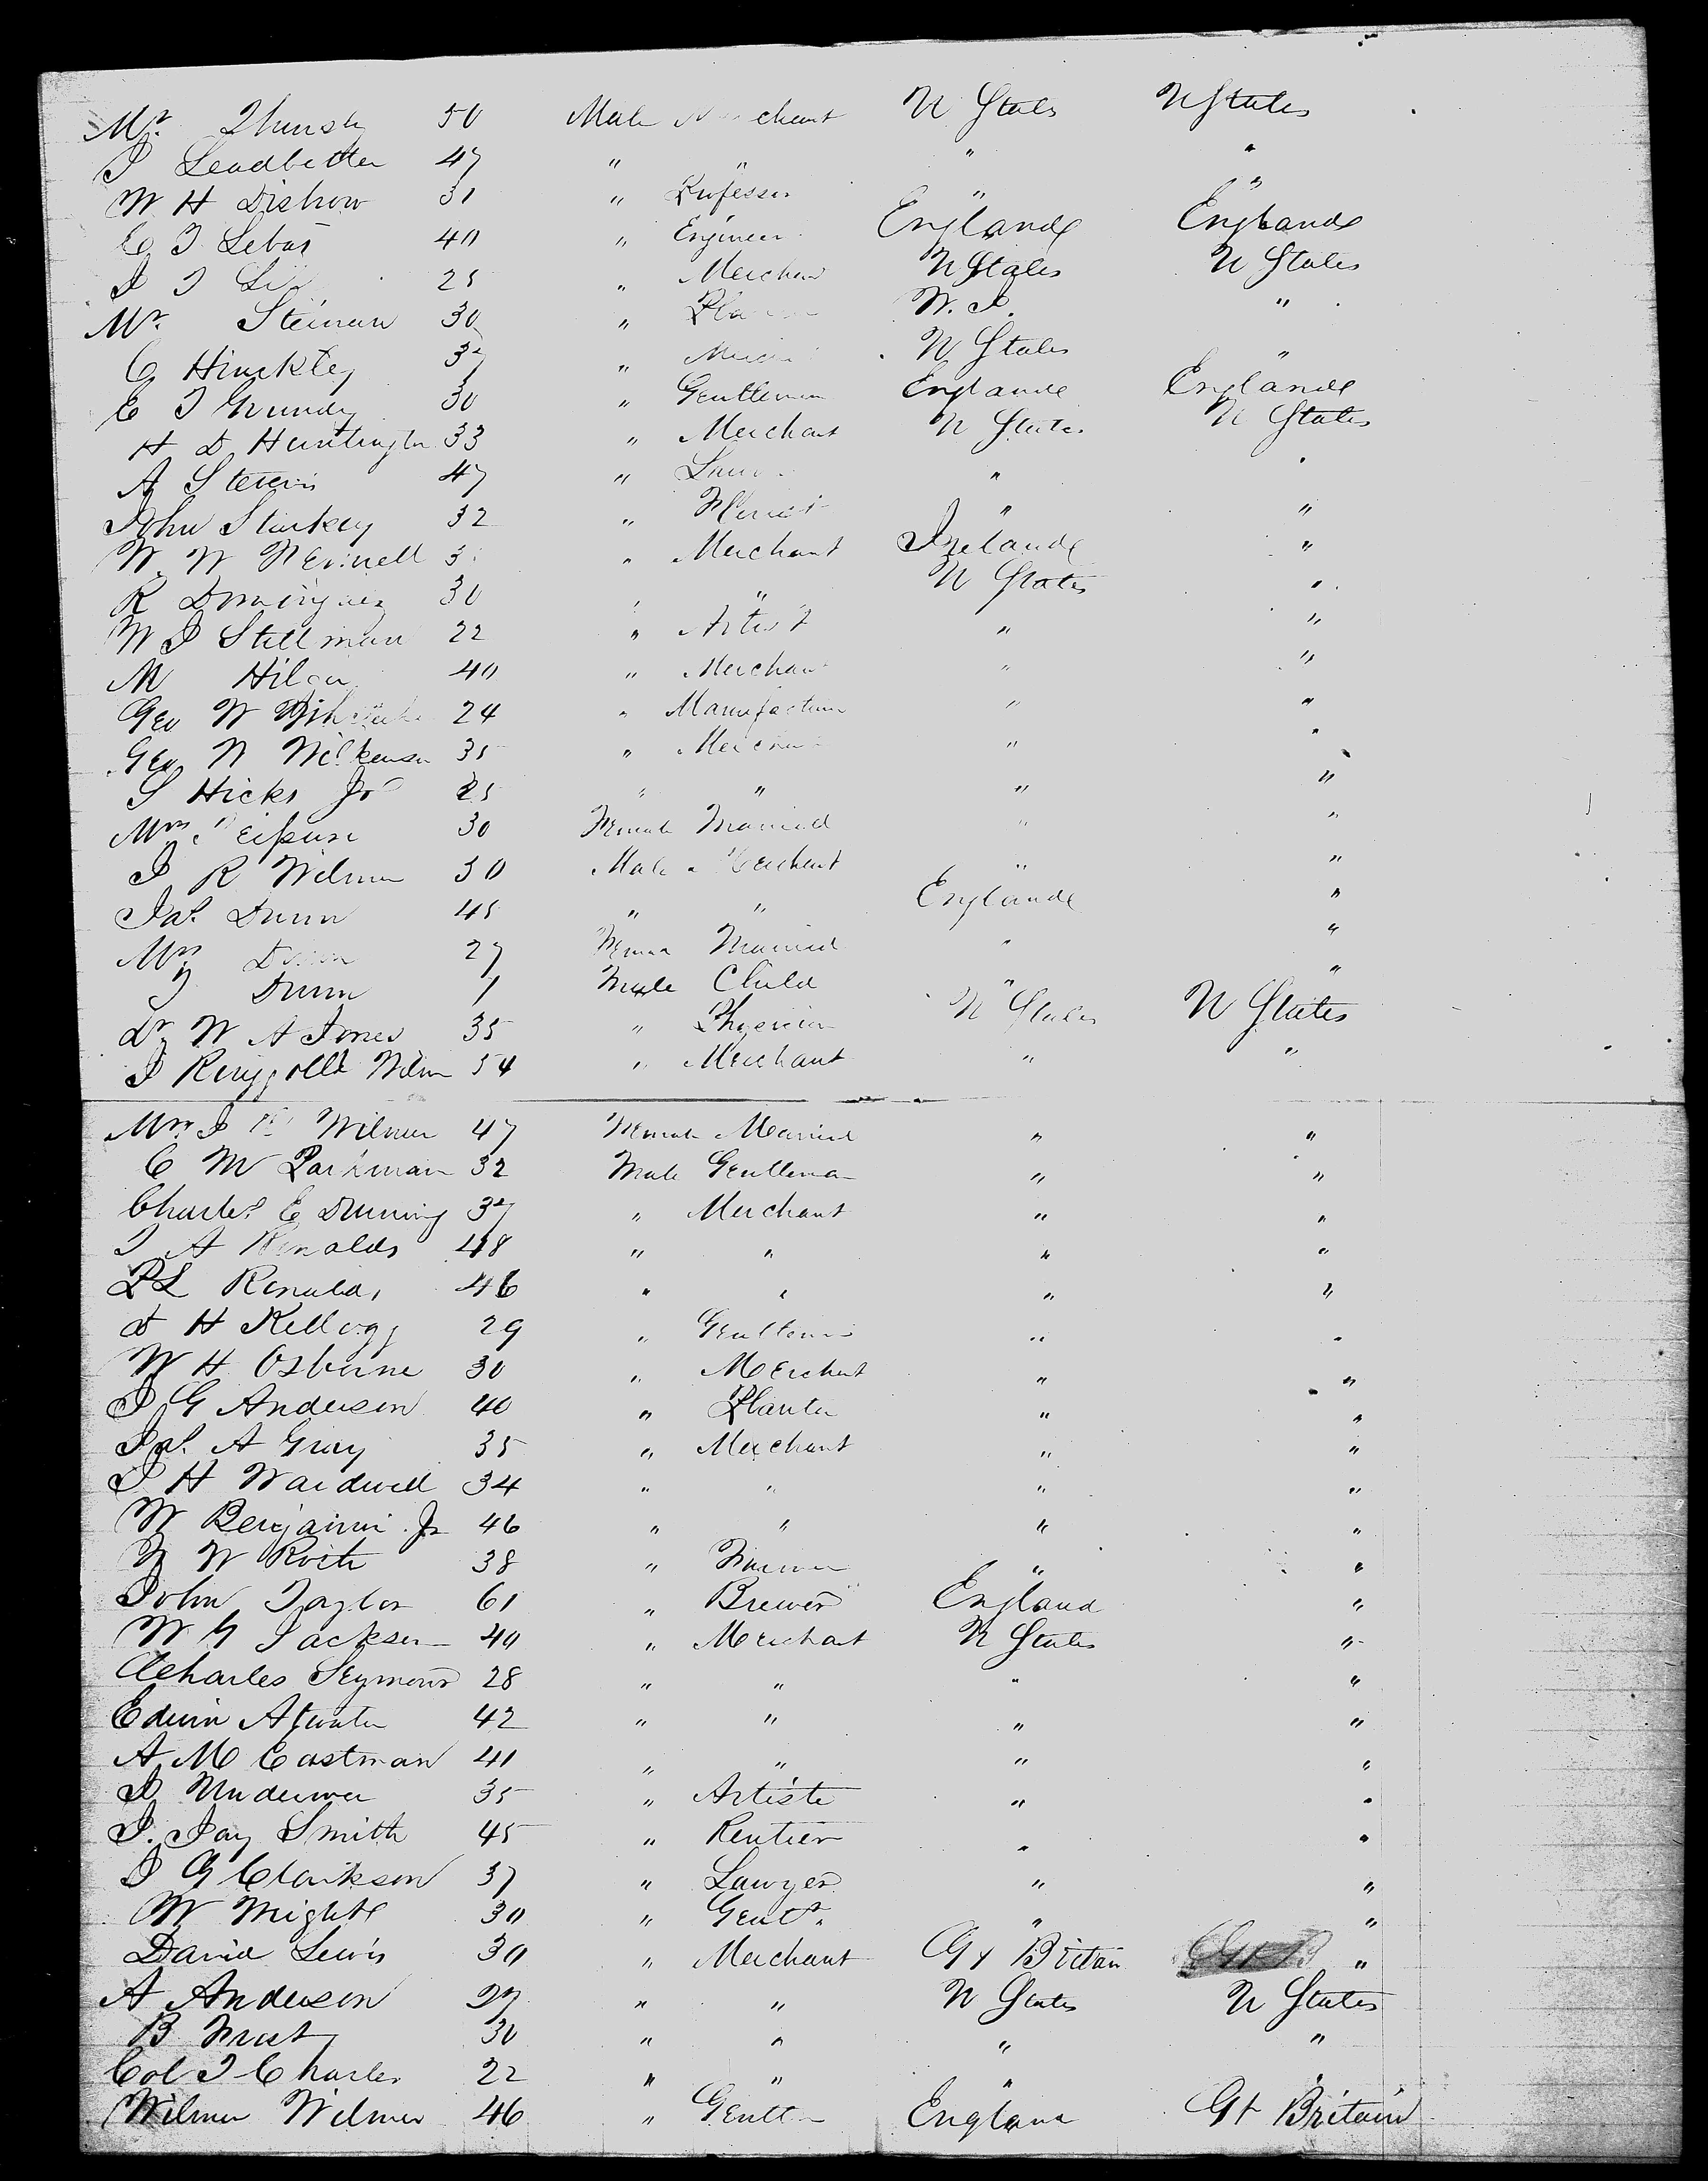 Mr. 50 Male chant U States U States
J Leadbetter 47 " " " "
W H Disbrow 31 " Professor " "
E J Lebas 40 " Engineer England England
J J 25 " Merchan U States U States
Mr. 30 " W. I. "
C Hinckley 37 " U States "
E J Grundy 30 " Gentleman England England
H D Huntington 33 " Merchant U States U States
A Stevens 47 " " "
John Starkey 32 " " "
W. W 3 " Merchant Ireland "
R Dominguez 30 " " U States "
W J Stillman 22 " Artist " "
M 40 " Merchan " "
Geo W 24 " Manufacturer " "
Geo W Wilkenson 35 " Merchant " "
S Hicks Jr 25 " " " "
Mrs 30 Female Married " "
J R Wilmer 30 Male Merchant " "
Jas. Dunn 45 " " England "
Mrs Dunn 27 Female Married " "
Dunn 1 Male Child " "
Dr W A Jones 35 " Physician U States U States
J Ringgold Wilmer 54 " Merchant " "
Mrs J Wilmer 47 Female Married " "
C M Parkman 32 Male Gentleman " "
Charles E Dunning 37 " Merchant " "
J A Renalds 48 " " " "
P L Renalds 46 " " " "
D H Kellogg 29 " Gentleman " "
W H Osborne 30 " Merchant " "
J G Anderson 40 " Planter " "
Jas. A Gray 35 " Merchant " "
J H Wardwell 34 " " " "
W Benjamin Jr 46 " " " "
W 38 " Farmer " "
John Taylor 61 " Brewer England "
W G Jackson 40 " Merchant U States "
Charles Seymour 28 " " " "
Edwin Atwater 42 " " " "
A M Eastman 41 " " " "
J 35 " Artiste " "
J. Jay Smith 45 " Rentier " "
J G Clarkson 37 " Lawyer " "
W Wright 30 " Gent. " "
David Lewis 30 " Merchant Gt Britain "
A Anderson 27 " " U States U States
B 30 " " " "
Col J Charles 22 " " " "
Wilmer Wilmer 46 " Gentln England Gt Britain